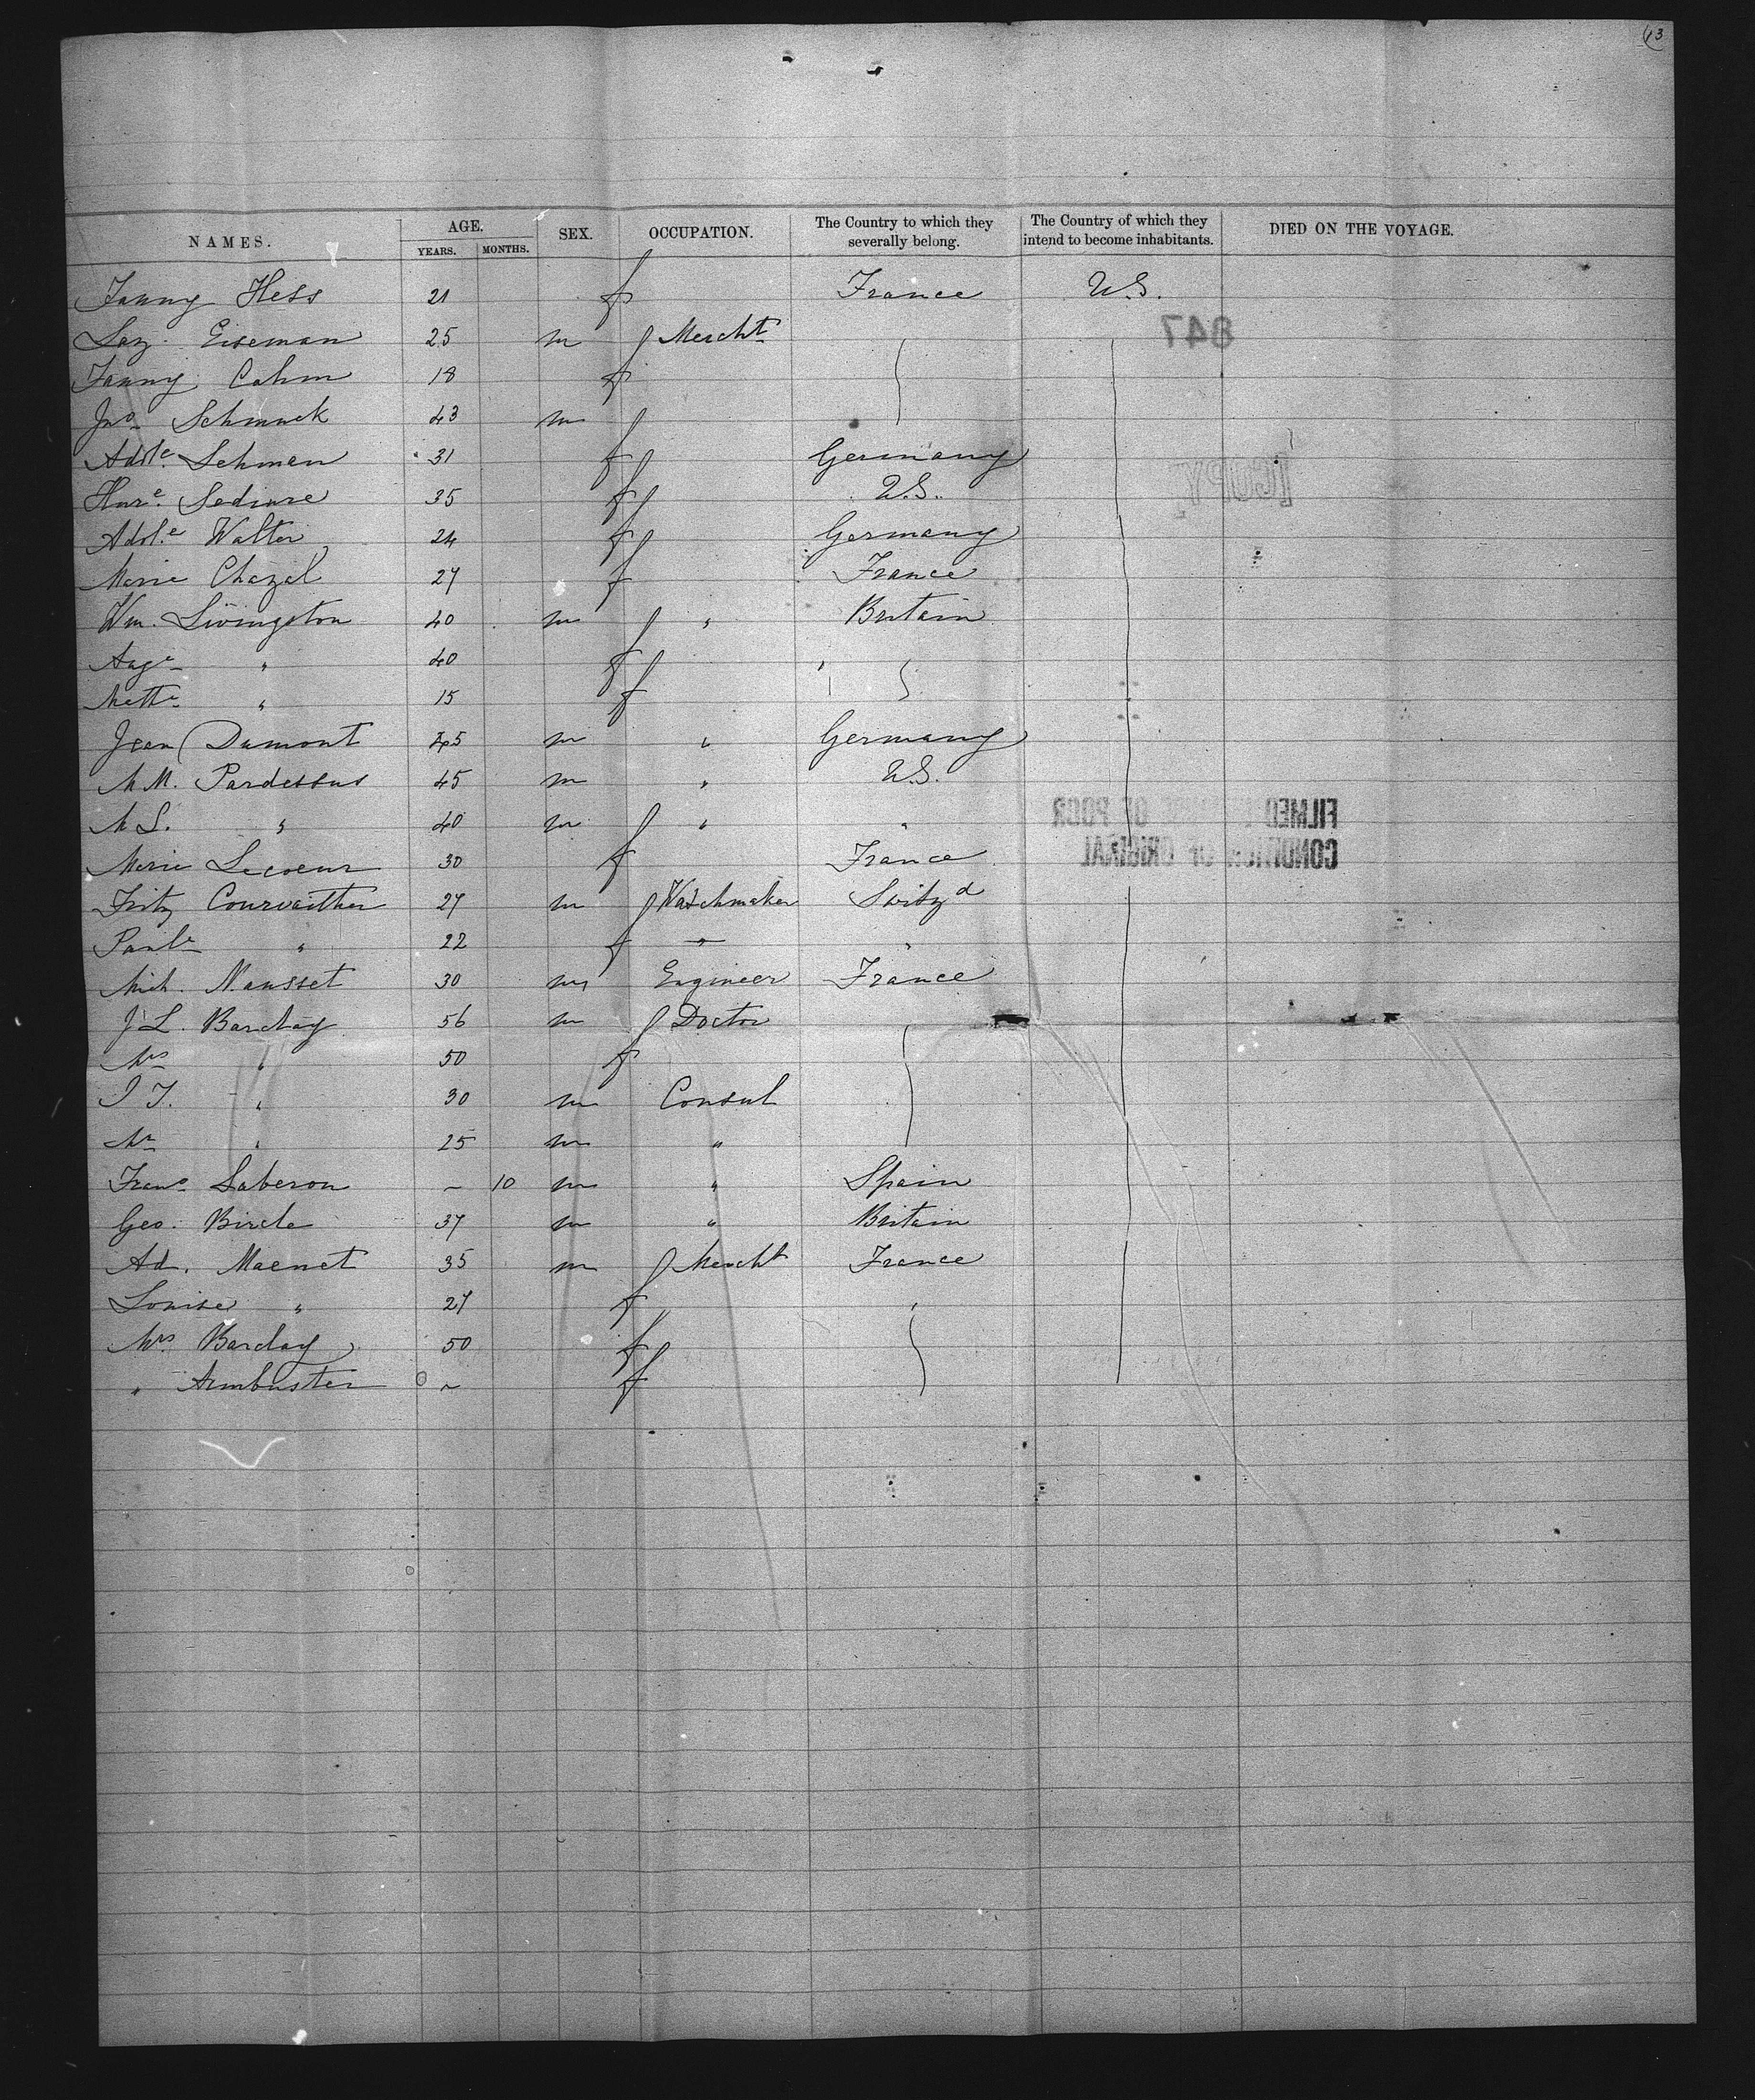 13
NAMES. AGE. YEARS. MONTHS. SEX. OCCUPATION. The Country to which they severally belong. The Country of which they intend to become inhabitants. DIED ON THE VOYAGE.
Fanny Hess 21 f France U.S.
Laz. Eiseman 25 m Mercht
847
Fanny Cahm 18 f
Jno Schmuck 43 m
Adle. Lehman 31 f Germany
COPY
35 f U.S.
Adle. Walter 24 f Germany
Marie Chazal 27 f France
Wm. Livingston 40 m " Britain
Auge " 40 f
" 15 f
Jean Dumont 45 m " Germany
M M. Pardessus 45 m " U.S.
M L. " 40 m " "
FILMED BECAUSE OF POOR
CONDITION OF ORIGINAL
Marie Lecoeur 30 f France
Fritz Courvaither 27 m Watchmaker Switzd
Paule " 22 f " "
Mich. Nausset 30 m Engineer France
J L. Barclay 56 m Doctor
Mrs " 50 f
" 30 m Consul
Mr " 25 m "
Frano Laberon ~ 10 m " Spain
Geo. Bircle 37 m " Britain
Ad. Maenet 35 m Mercht France
Louise " 27 f "
Mrs Barclay 50 f
" Armbuster ~ f